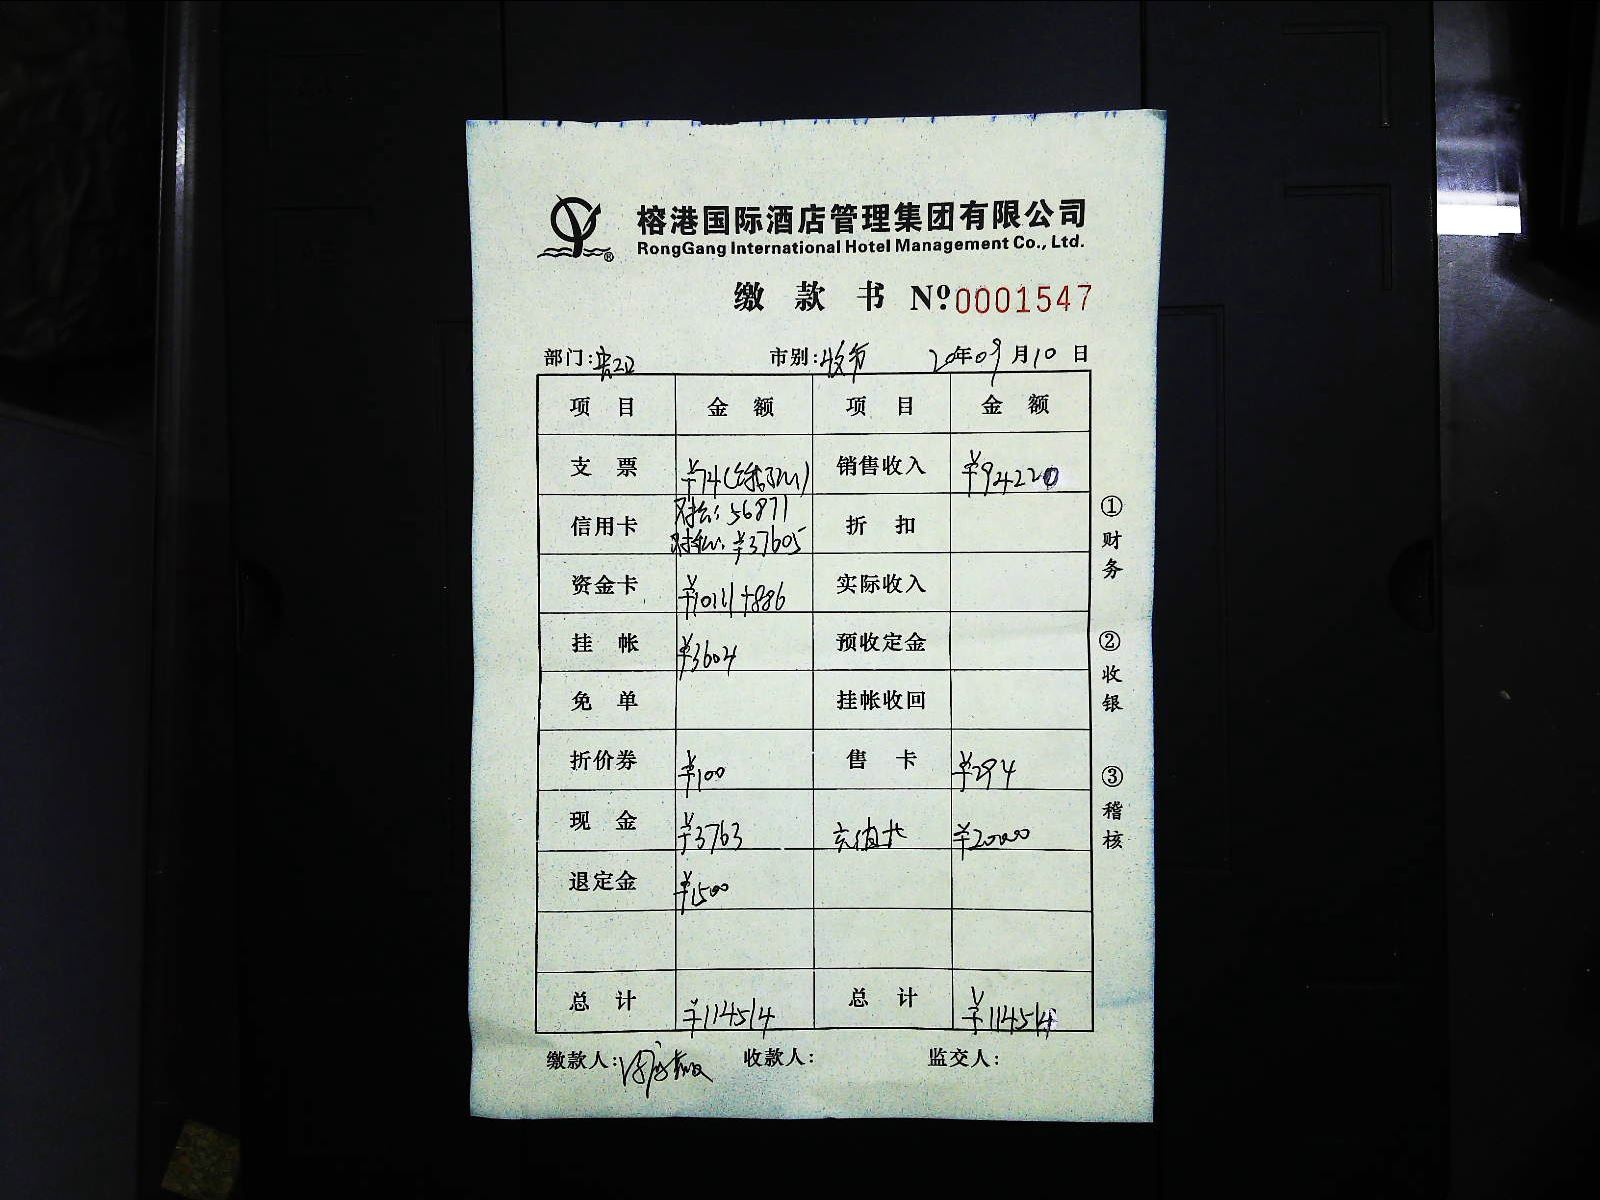 榕港国际酒店管理集团有限公司
RongGang International Hotel Management Co., Ltd.
缴款书 Nº 0001547
部门: 市别: 20年09月10日
项目 金额 项目 金额
支票 ¥74 销售收入 ¥94220
信用卡 56871 ¥37605 折扣
资金卡 ¥10111+886 实际收入
挂帐 ¥3604 预收定金
免单 挂帐收回
折价券 ¥100 售卡 ¥294
现金 ¥3763 充值卡 ¥20000
退定金 ¥1500
总计 ¥114514 总计 ¥114514
缴款人: 收款人: 监交人:
①财务
②收银
③稽核